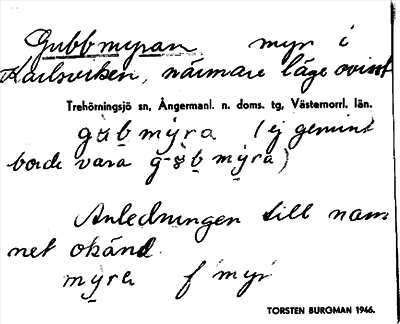 Gubbmyran myr i
Karlsviken, närmare läge ovisst
Trehörningsjö sn, Ångermanl. n. doms. tg, Västernorrl. län.
gubmyra (ej gemint
borde vara g-bmyra)
Anledningen till nam
net okänd.
myra f myr
TORSTEN BURGMAN 1946.